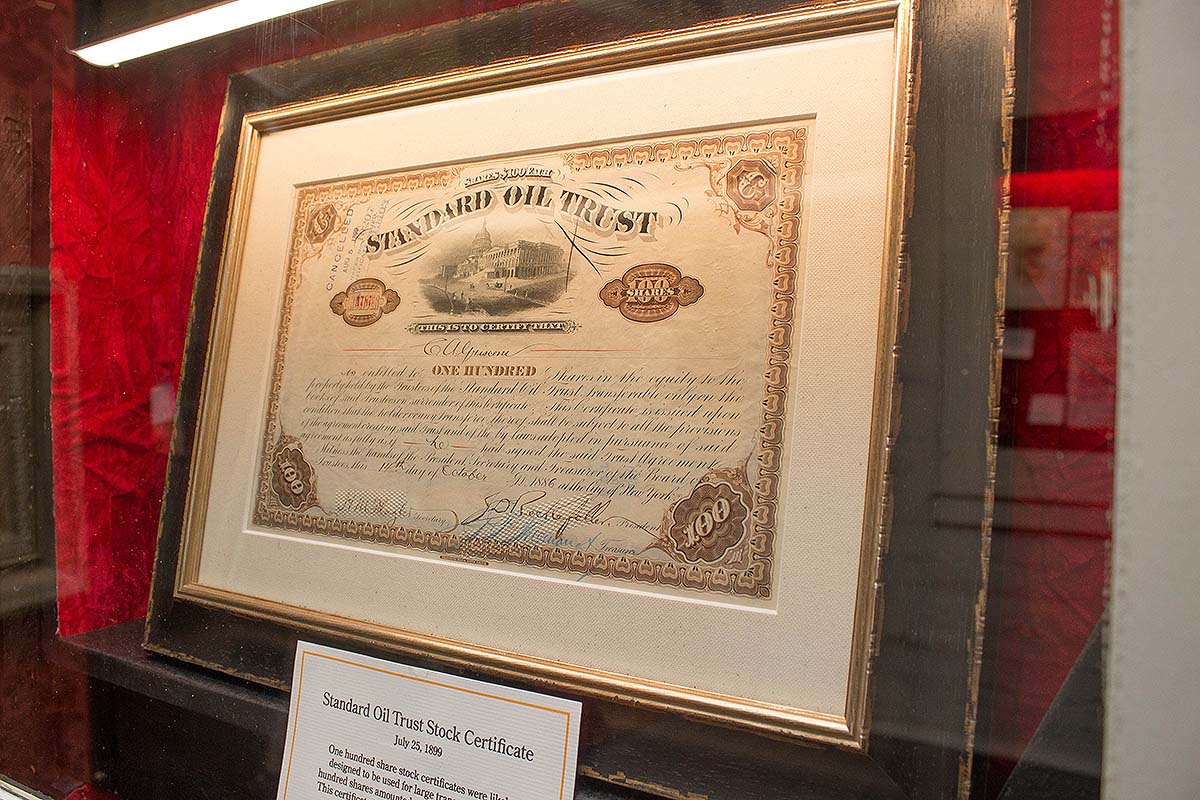 SHARES $100 EACH
STANDARD OIL TRUST
CANCELED
100
SHARES
THIS IS TO CERTIFY THAT
is entitled to ONE HUNDRED Shares in the equity to the
property held by the Trustees of the Standard Oil Trust, transferable only on the
books of said Trustees on surrender of this Certificate. This Certificate is issued upon
condition that the holder or any transferee thereof shall be subject to all the provisions
of the agreement creating said Trust and of the by-laws adopted in pursuance of said
agreement as fully as if he had signed the said Trust Agreement.
Witness the hands of the President Secretary and Treasurer of the Board of
Trustees, this day of October 1886 at the City of New York.
100
Secretary
J D Rockefeller President
100
Treasurer
Standard Oil Trust Stock Certificate
July 25, 1899
One hundred share stock certificates were
designed to be used for large
hundred shares
This